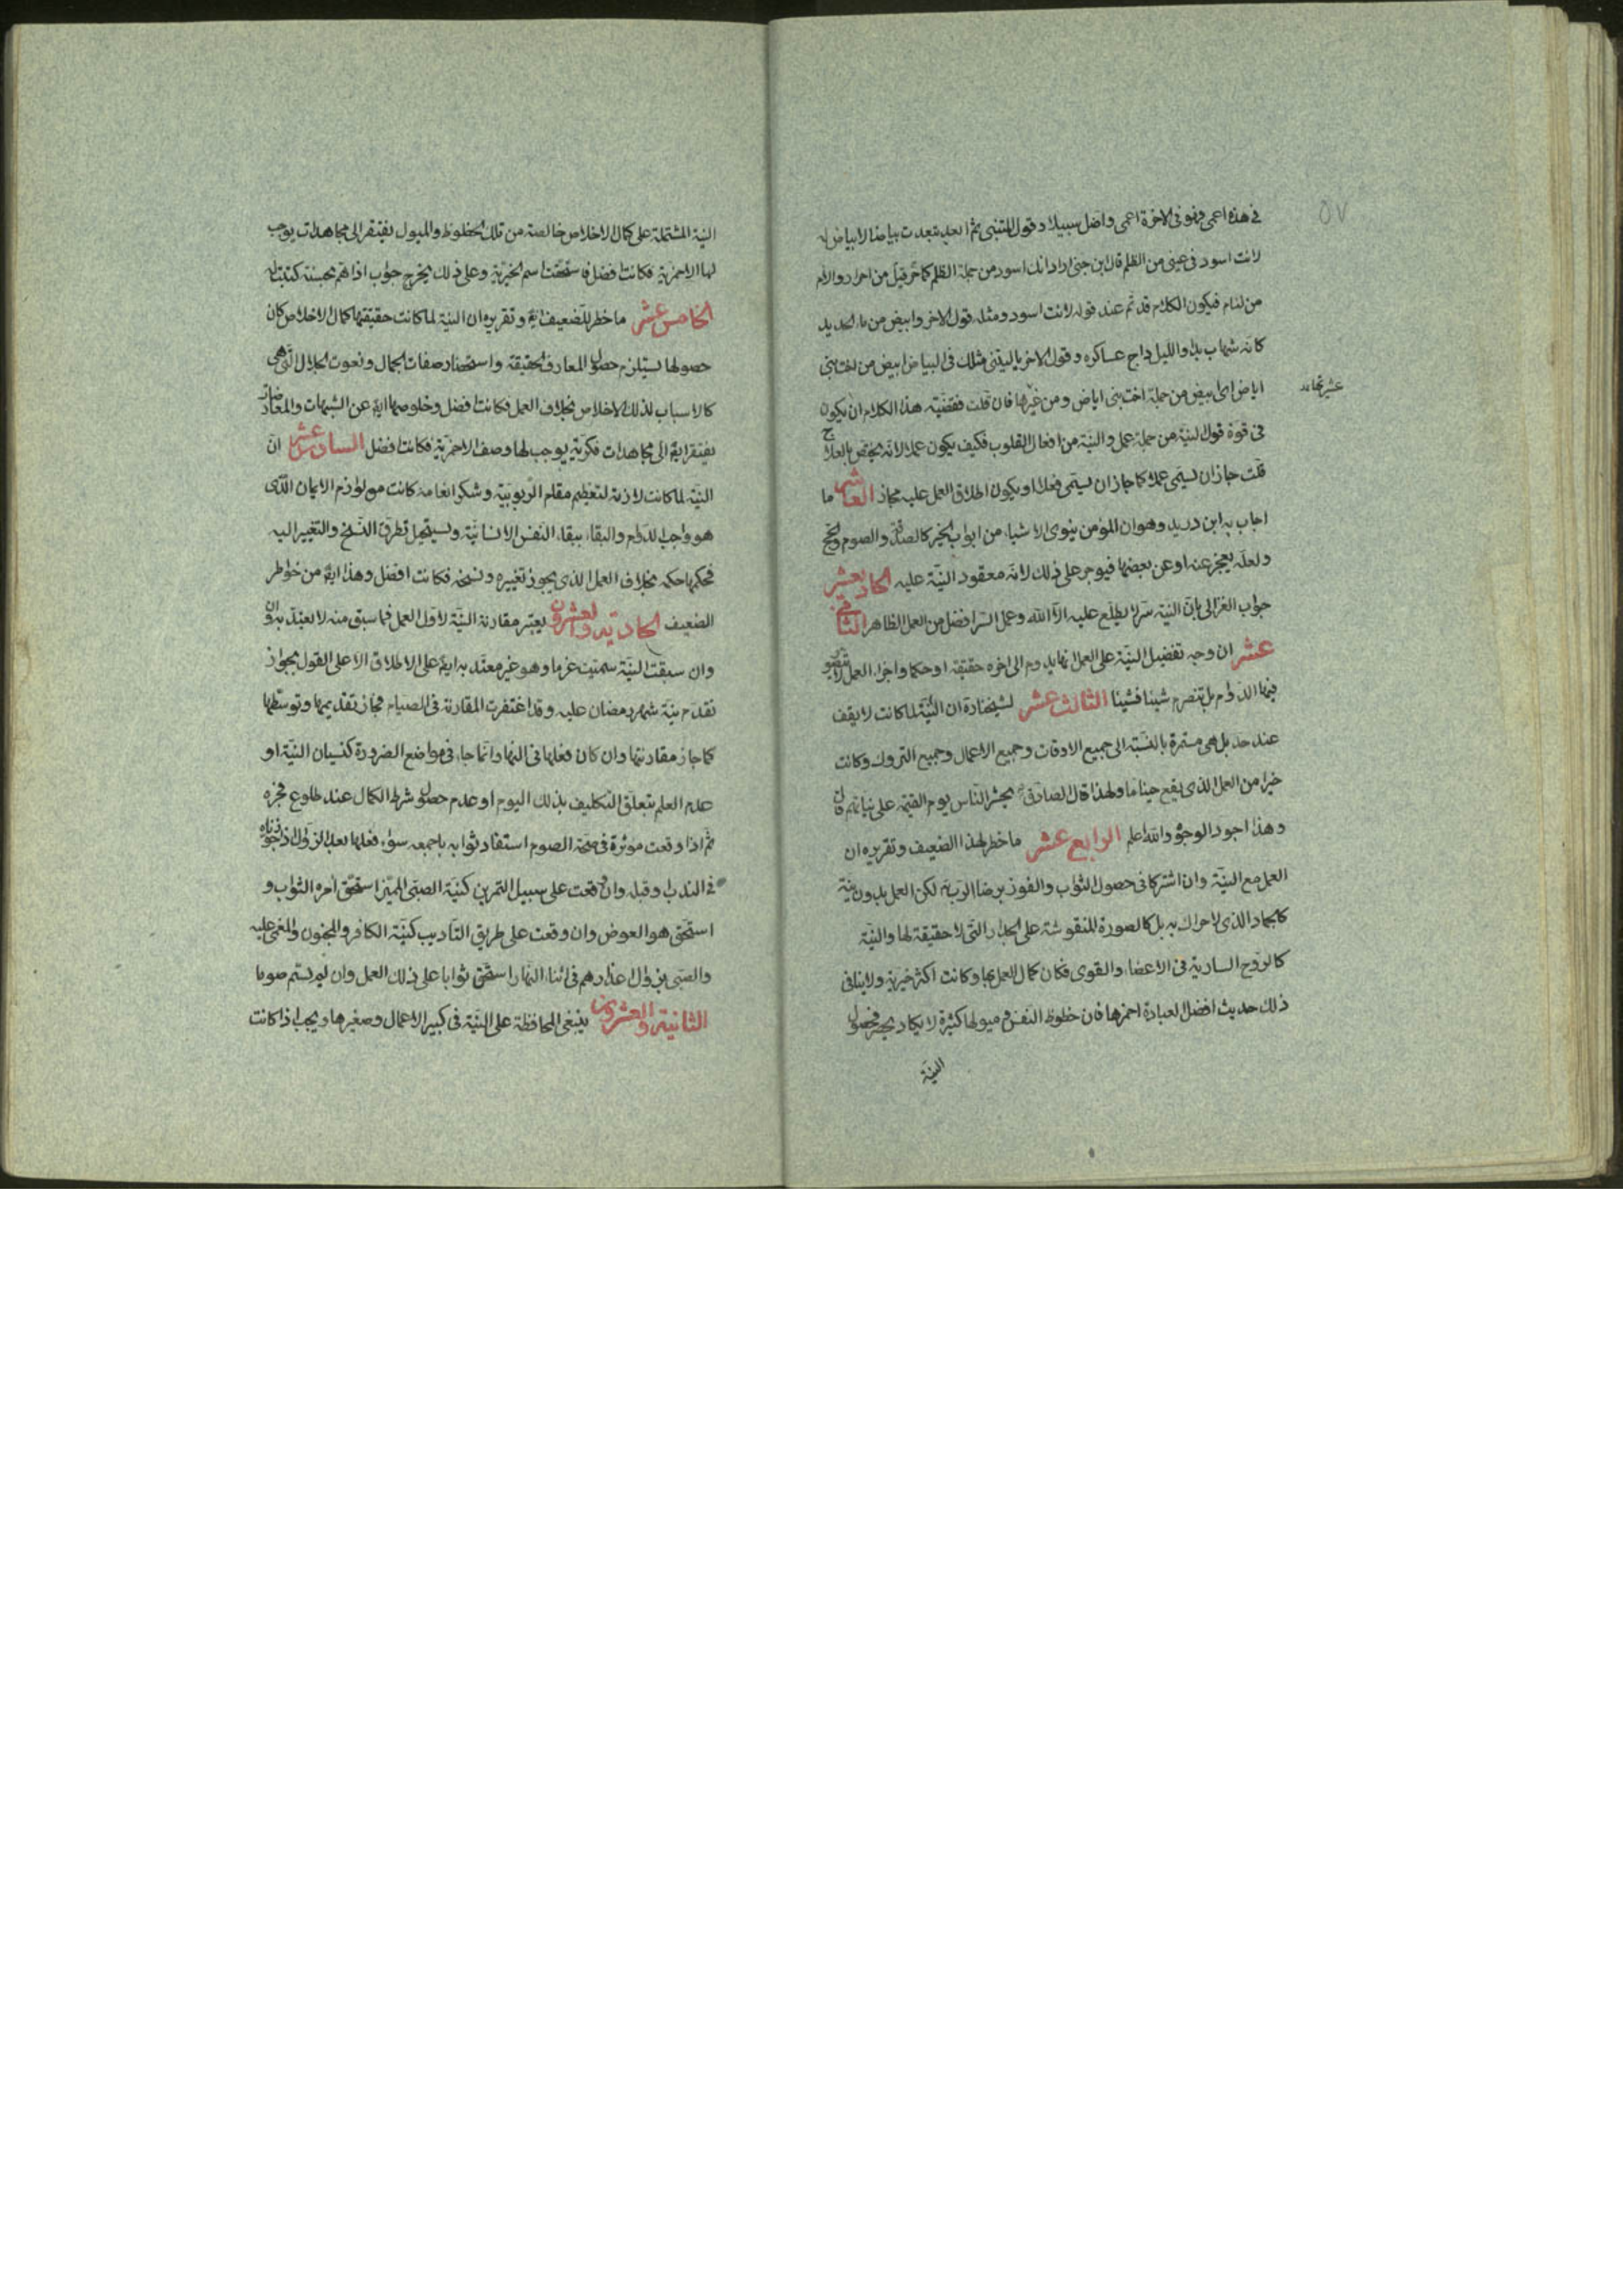 ٥٧
في هذه اعمى فهو في الاخرة اعمى واضل سبيلا وقول المتنبى ابعد بعدت بياضا لا بياض له
لانت اسود في عينى من الظلم قال ابن جنى اراد انك اسود من جملة الظلم كما حر من احرار و
من لئام فيكون الكلام قد تم عند قوله لانت اسود ومثله قول الاخر وابيض من ماء الحديد
كانه شهاب بدا والليل داج عساكره وقول الاخر يا ليتنى مثلك في البياض ابيض من اخت بنى
اباض اى ابيض من جملة اخت بنى اباض ومن غيرها فان قلت فقضية هذا الكلام ان يكون
في قوة قول النية من جملة عمل والنية من افعال القلوب فكيف يكون عملا لانه يختص بالعلاج
قلت جاز ان يسمى عملا كما جاز ان يسمى فعلا او يكون اطلاق العمل عليه مجاز العاشر ما
اجاب به ابن دريد وهو ان المؤمن ينوى الاشياء من ابواب الخير كالصدقة والصوم والحج
ولعله يعجز عنها وعن بعضها فيوجر على ذلك لانه معقود النية عليه الحاديعشر
جواب الغزالى بان النية سر لا يطلع عليه الا الله وعمل السر افضل من العمل الظاهر الثانى
عشر ان وجه تفضيل النية على العمل انها يدوم الى اخره حقيقة او حكما واجزاء العمل لا يتصور
فيها الدوام بل تتصرم شيئا فشيئا الثالث عشر ان النية لما كانت لا يقف
عند حد بل هى مستمرة بالنسبة الى جميع الاوقات وجميع الاعمال وجميع التروك وكانت
خيرا من العمل الذى يقع حينا ما ولهذا قال الصادق يحشر الناس يوم القيمة على نياتهم
وهذا اجود الوجوه والله اعلم الرابع عشر ما خطر لهذا الضعيف وتقريره ان
العمل مع النية وان اشتركا في حصول الثواب والفوز برضا الرب لكن العمل بدون نية
كالجماد الذى لا حراك به بل كالصورة المنقوشة على الجدار التى لا حقيقة لها والنية
كالروح السارية في الاعضاء والقوى فكان كمال العمل بها وكانت اكثر خيرية ولا ينافى
ذلك حديث افضل العبادة احمزها فان حظوظ النفس وميولها كثيرة لا يكاد ينحصر فحصول
النية
النية المشتملة على كمال الاخلاص خالصة من تلك الحظوظ والميول يفتقر الى مجاهدات يوجب
لها الاحمزية فكانت افضل فاستحقت اسم الخيرية وعلى ذلك يخرج جواب اذا هم بحسنة كتبت له
الخامس عشر ما خطر للضعيف ايضا وتقريره ان النية لما كانت حقيقتها كمال الاخلاص كان
حصولها يستلزم حصول المعارف الحقيقة واستحضار صفات الجمال ونعوت الجلال التى هى
كالاسباب لذلك الاخلاص بخلاف العمل فكانت افضل وخلوصها ايضا عن الشبهات والمعارضات
يفتقر ايضا الى مجاهدات فكرية يوجب لها وصف الاحمزية فكانت افضل السادس عشر ان
النية لما كانت لازمة لتعظيم مقام الربوبية وشكر انعامه كانت من لوازم الايمان الذى
هو واجب الدوام والبقاء ببقاء النفس الانسانية ويستحيل تطرق النسخ والتغيير اليه
فحكمها حكمه بخلاف العمل الذى يجوز تغييره ونسخه فكانت افضل وهذا ايضا من خواطر
الضعيف الحادية والعشرون يعتبر مقارنة النية لاول العمل فما سبق منه لا يعتد به
وان سبقت النية سميت عزما وهو غير معتد به ايضا على الاطلاق الا على القول بجواز
تقدم نية شهر رمضان عليه وقد اغتفرت المقارنة في الصيام فجاز تقديمها وتوسطها
كما جاز مقارنتها وان كان فعلها في النهار انما جاء في مواضع الضرورة كنسيان النية او
عدم العلم بتعلق التكليف بذلك اليوم او عدم حصول شرط الكمال عند طلوع فجره
ثم اذا وقعت مؤثرة في صحة الصوم استفاد ثوابه باجمعه سواء فعلها بعد الزوال اذ جوزناه
في الندب او قبله وان وقعت على سبيل التمرين كنية الصبى المميز استحق آمره الثواب و
استحق هو العوض وان وقعت على طريق التاديب كنية الكافر والمجنون والمغمى عليه
والصبى بزوال اعذارهم في اثناء النهار استحق ثوابا على ذلك العمل وان لم يستم صوما
الثانية والعشرون ينبغى المحافظة على النية في كبير الاعمال وصغيرها ويجب اذا كانت